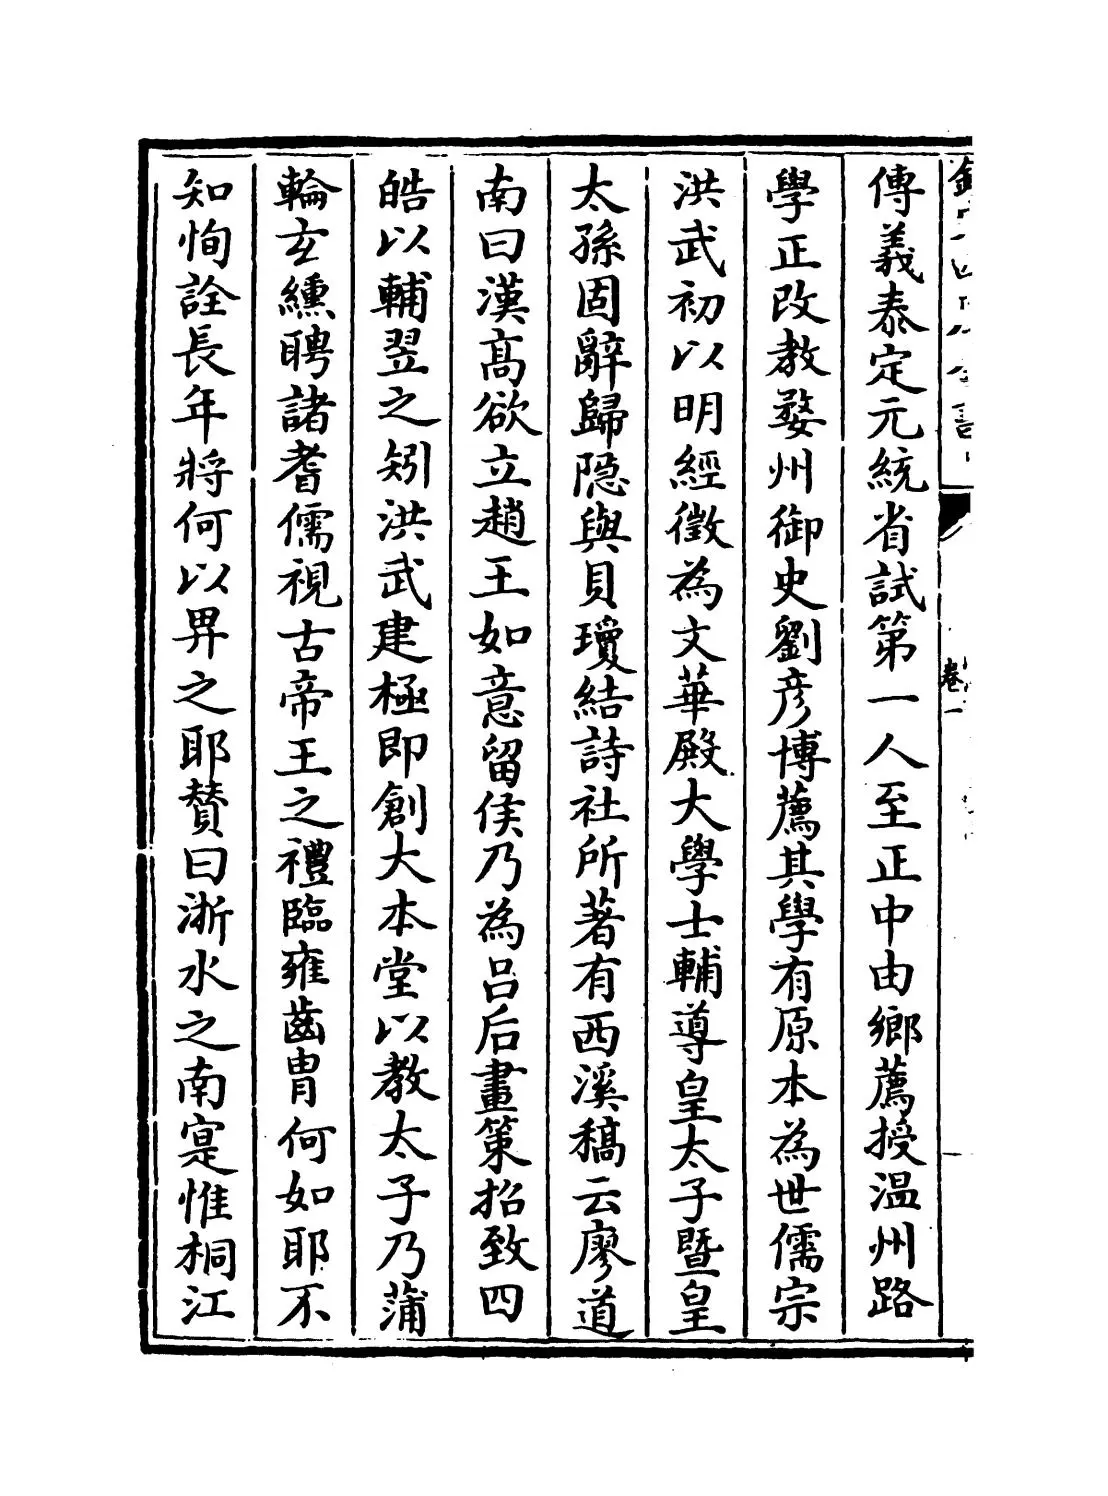 傳義泰定元統省試第一人至正中由鄉薦授温州路
學正改教婺州御史劉彦博薦其學有原本為世儒宗
洪武初以明經徵為文華殿大學士輔導皇太子暨皇
太孫固辭歸隐與貝瓊結詩社所著有西溪稿云廖道
南曰漢髙欲立趙王如意留侯乃為吕后畫策招致四
皓以輔翌之矧洪武建極即創大本堂以教太子乃蒲
輪玄纁聘諸耆儒視古帝王之禮臨雍齒胄何如耶不
知恂詮長年將何以畀之耶賛曰浙水之南寔惟桐江
卷一